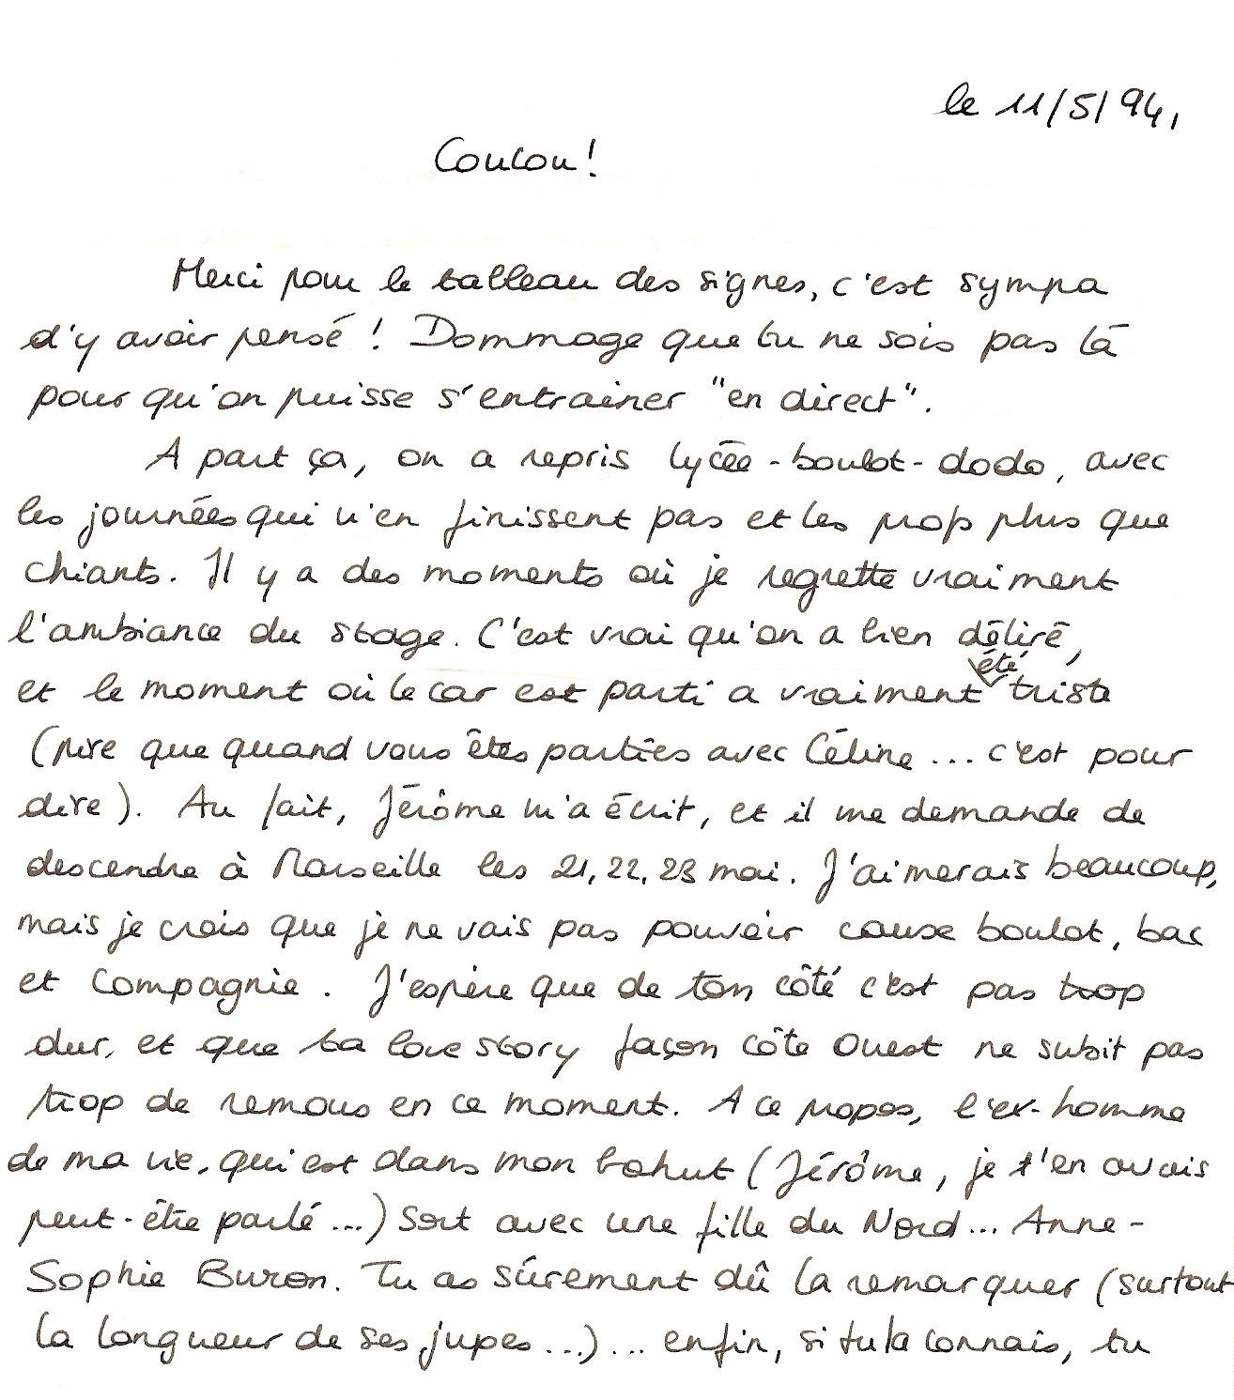 le 11/5/94,
Coucou!
Merci pour le tableau des signes, c'est sympa
d'y avoir pensé ! Dommage que tu ne sois pas là
pour qu'on puisse s'entrainer "en direct".
A part ça, on a repris lycée-boulot-dodo, avec
les journées qui n'en finissent pas et les profs plus que
chiants. Il y a des moments où je regrette vraiment
l'ambiance du stage. C'est vrai qu'on a bien déliré,
et le moment où le car est parti a vraiment été triste
(pire que quand vous êtes parties avec Céline... c'est pour
dire). Au fait, Jérôme m'a écrit, et il me demande de
descendre à Marseille les 21, 22, 23 mai. J'aimerais beaucoup,
mais je crois que je ne vais pas pouvoir cause boulot, bac
et compagnie. J'espère que de ton côté c'est pas trop
dur, et que ta love story façon côte Ouest ne subit pas
trop de remous en ce moment. A ce propos, l'ex-homme
de ma vie, qui est dans mon bahut (Jérôme, je t'en avais
peut-être parlé...) sort avec une fille du Nord... Anne-
Sophie Buron. Tu as sûrement dû la remarquer (surtout
la longueur de ses jupes...)... enfin, si tu la connais, tu